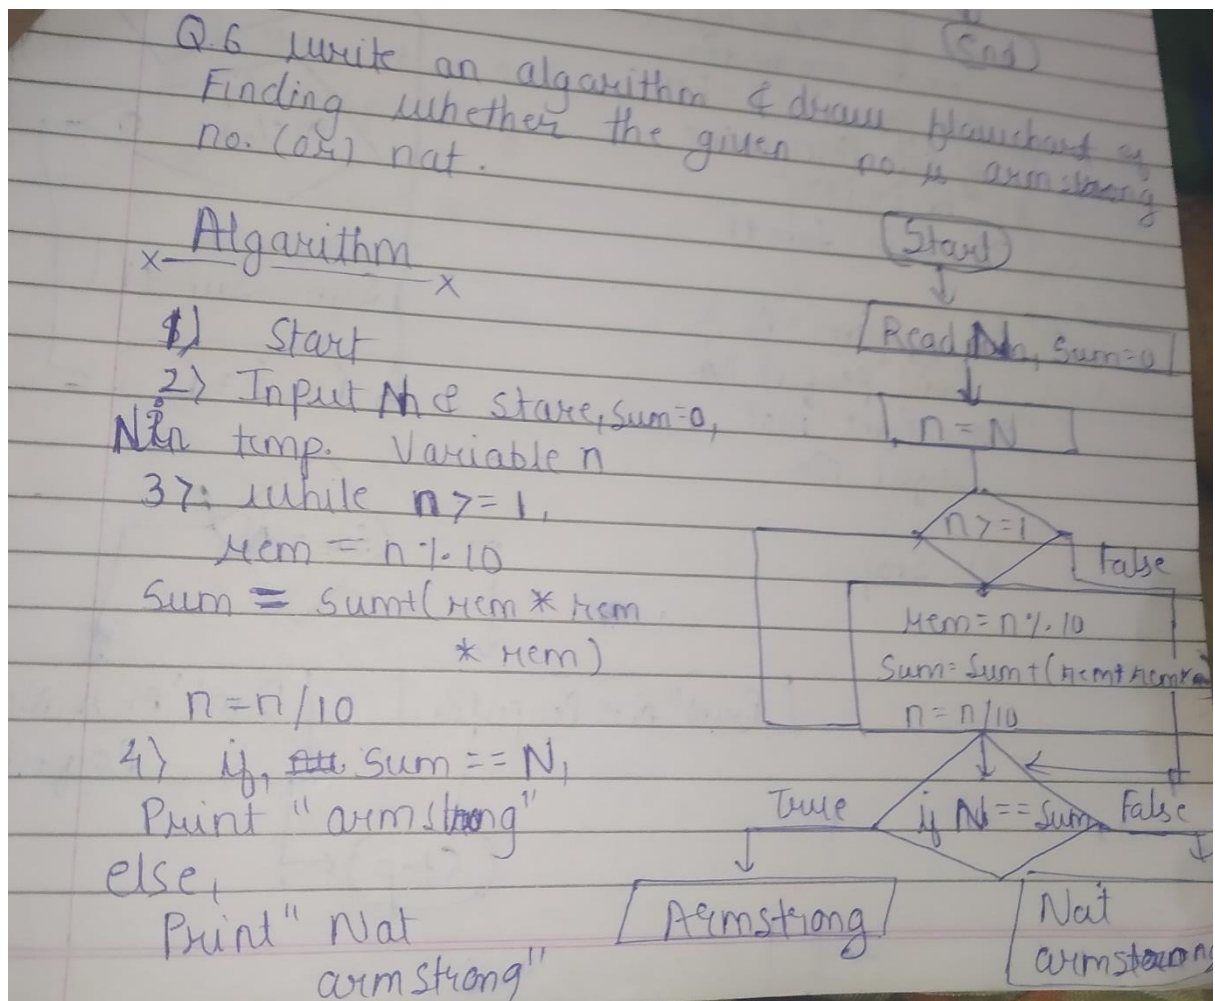 End
Q.6 Write an algorithm & draw flowchart of
Finding whether the given no is armstrong
no. (or) not.
Algorithm
1) Start
2) Input N & store, Sum=0,
N in temp. Variable n
3) while n>=1,
rem = n%10
Sum = Sum+(rem * rem
* rem)
n=n/10
4) if, Sum == N,
Print "armstrong"
else,
Print "Not
armstrong"
Start
Read N, Sum=0
n=N
n>=1
False
rem=n%10
Sum=Sum+(rem*rem*
n=n/10
True
if N==Sum
False
Armstrong
Not
armstrong